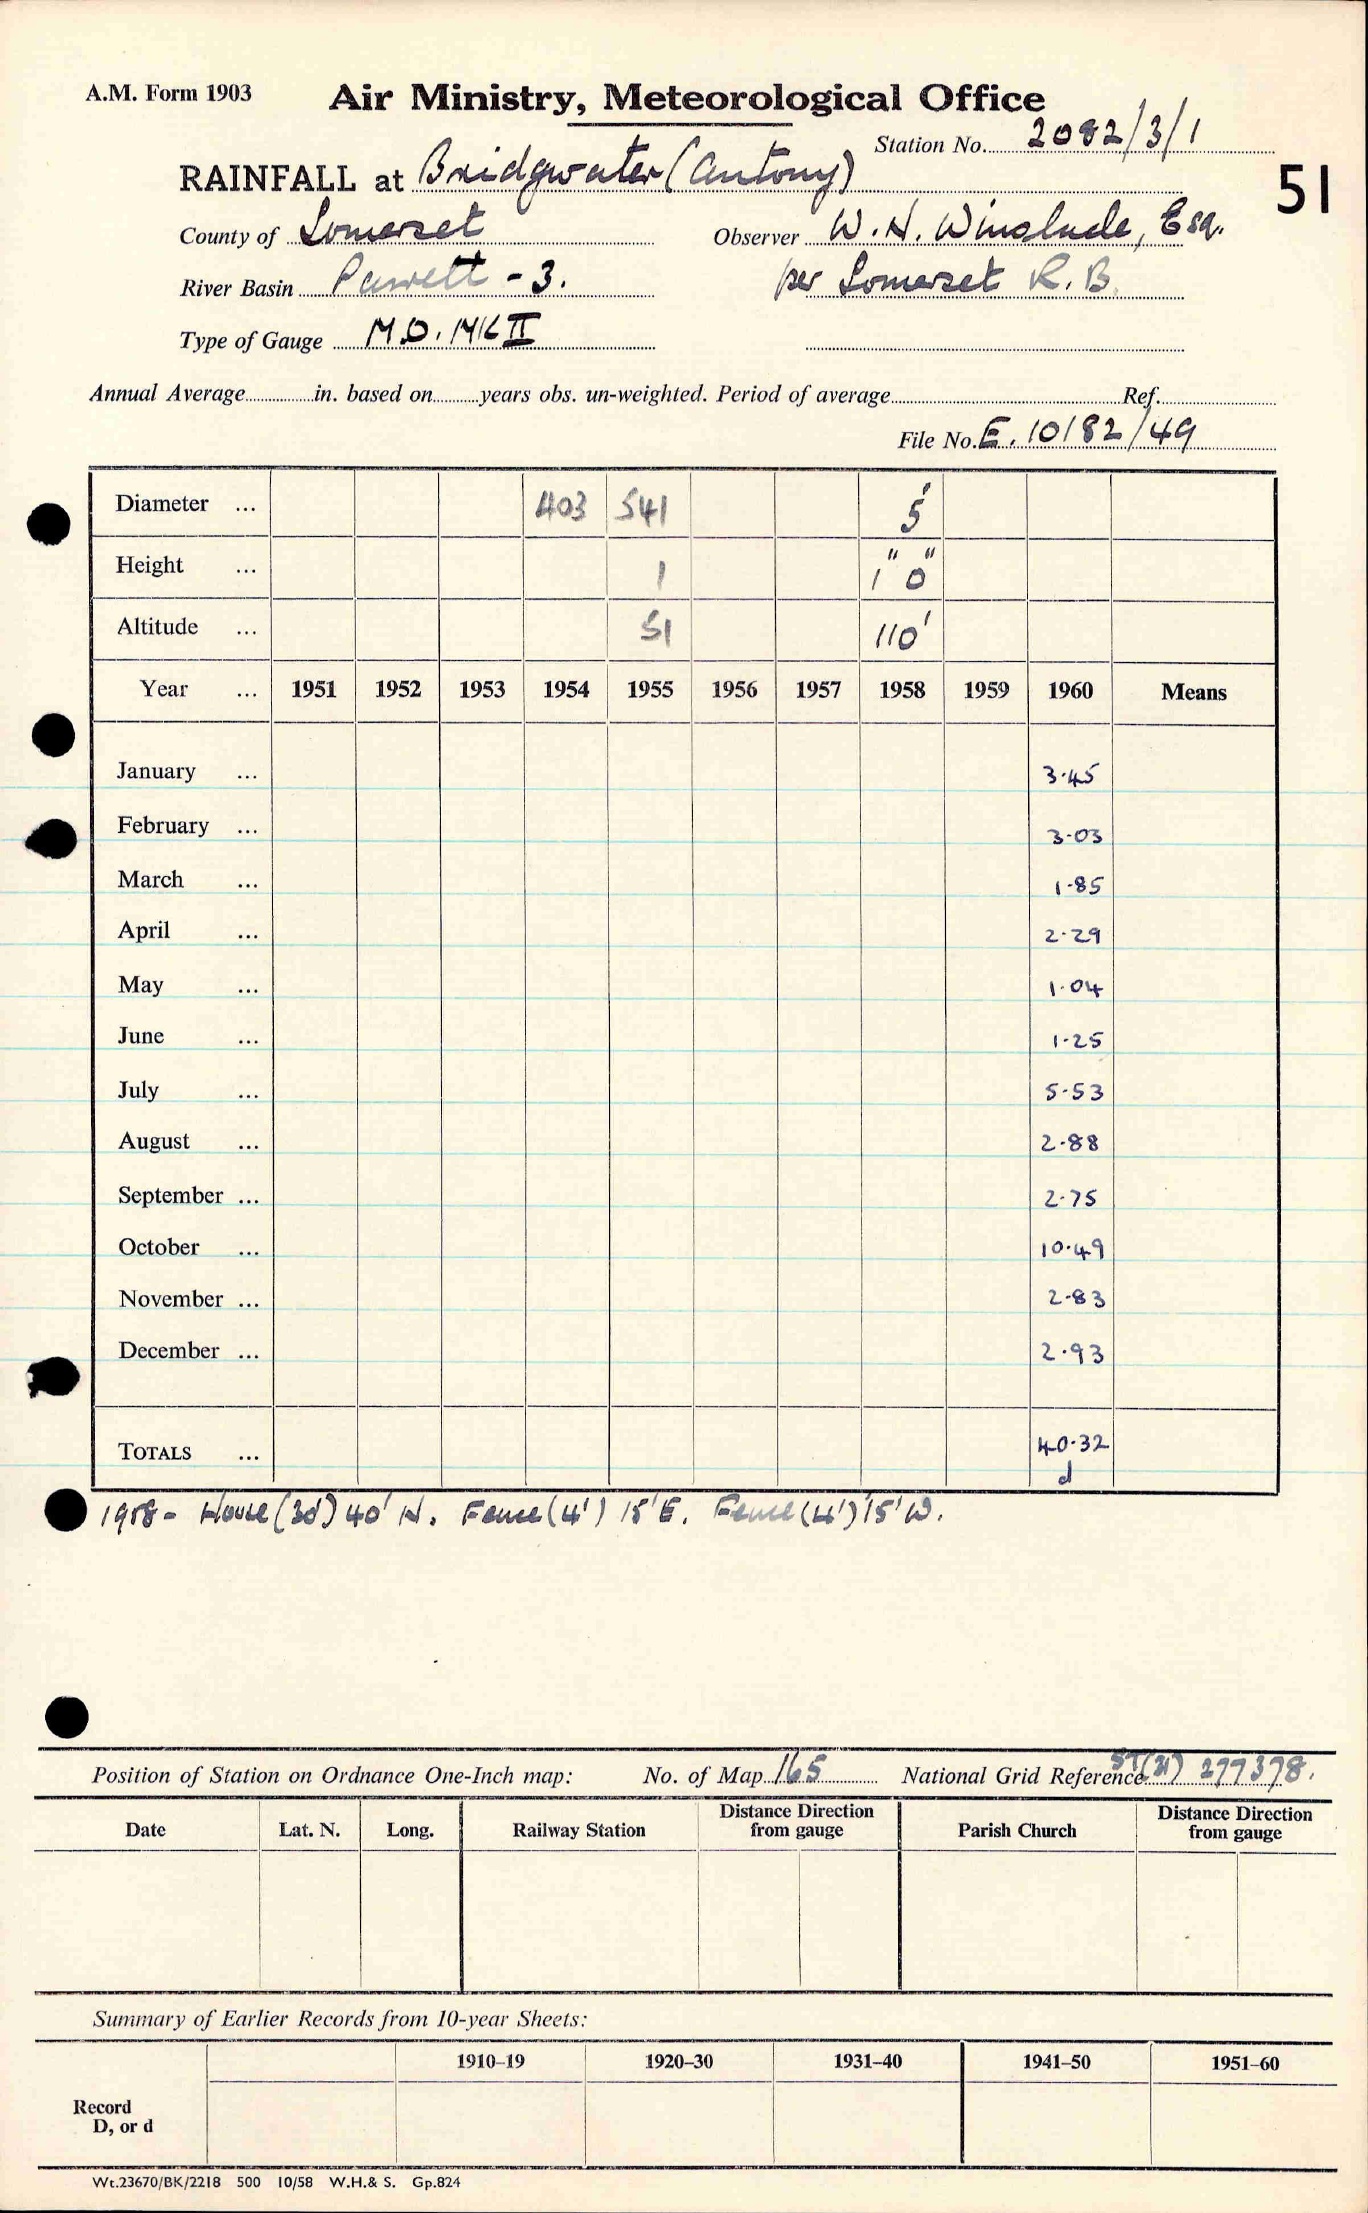 A.M. Form 1903
Air Ministry, Meteorological Office
Station No. 2082/3/1
RAINFALL at Bridgwater (Antony)
51
County of Somerset Observer W. H. Winslade, Esq.
River Basin Parrett - 3. per Somerset R. B.
Type of Gauge M.O. MK II
Annual Average in. based on years obs. un-weighted. Period of average Ref.
File No. E. 10182/49
Diameter ... 403 541 5'
Height ... 1 1" 0"
Altitude ... 51 110'
Year ... 1951 1952 1953 1954 1955 1956 1957 1958 1959 1960 Means
January ... 3.45
February ... 3.03
March ... 1.85
April ... 2.29
May ... 1.04
June ... 1.25
July ... 5.53
August ... 2.88
September ... 2.75
October ... 10.49
November ... 2.83
December ... 2.93
TOTALS ... 40.32
d
1958 - House (30') 40' N. Fence (4') 15' E. Fence (4') 15' W.
Position of Station on Ordnance One-Inch map: No. of Map 165 National Grid Reference ST(31) 277378.
Date Lat. N. Long. Railway Station Distance Direction from gauge Parish Church Distance Direction from gauge
Summary of Earlier Records from 10-year Sheets:
1910–19 1920–30 1931–40 1941–50 1951–60
Record
D, or d
Wt.23670/BK/2218 500 10/58 W.H.& S. Gp.824